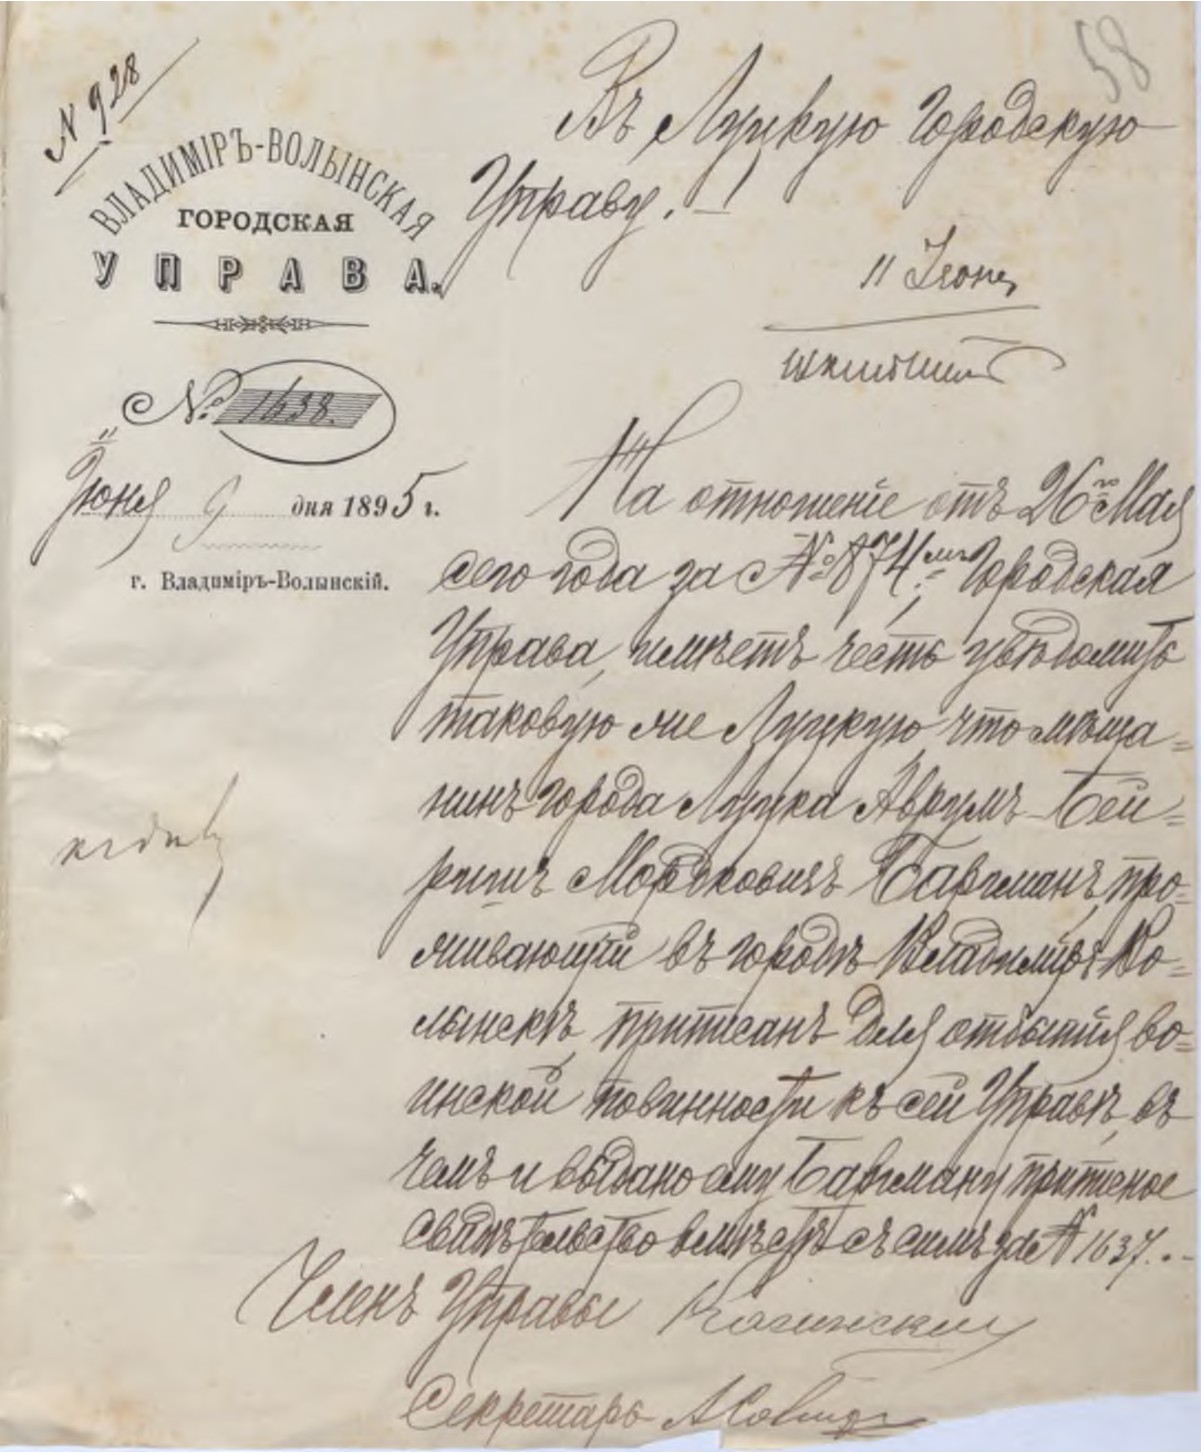 58
N 928
ВЛАДИМІРЪ-ВОЛЫНСКАЯ
ГОРОДСКАЯ
УПРАВА.
№ 1638.
Іюня 9 дня 1895 г.
г. Владиміръ-Волынскій.
Въ Луцкую Городскую
Управу.
11 Іюня
На отношеніе отъ 26го Мая
сего года за № 874мъ Городская
Управа, имѣетъ честь увѣдомить
таковую же Луцкую, что мѣща=
нинъ города Луцка Аврумъ-Бей=
ришъ Мордковичъ Баргманъ, про=
живающій въ городѣ Владимірѣ Во=
лынскѣ, приписанъ для отбытія во=
инской повинности къ сей Управѣ, въ
чемъ и выдано ему Баргману приписное
свидѣтельство вмѣстѣ съ симъ за № 1637.
Членъ Управы
Секретарь